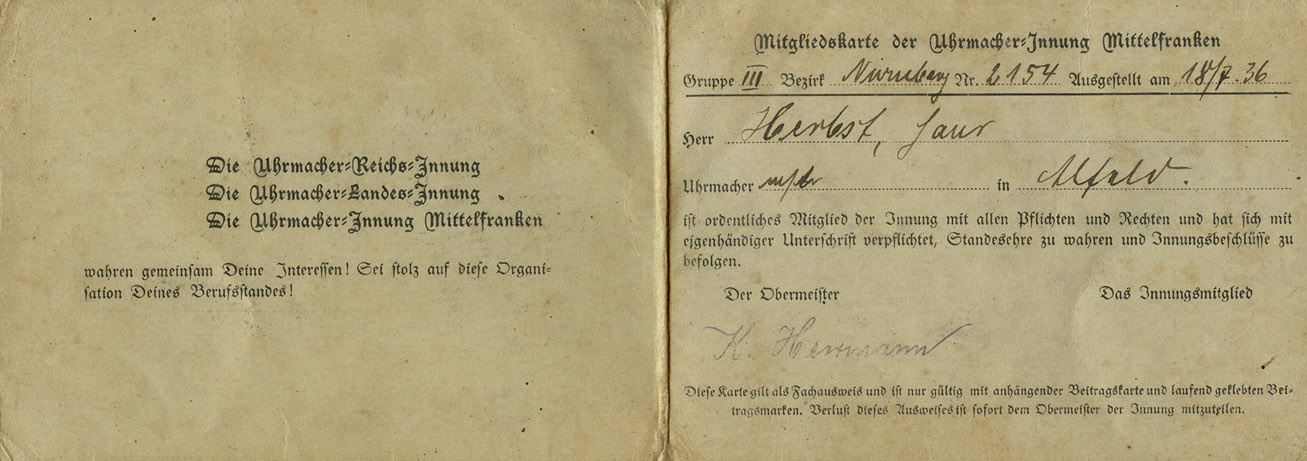 Die Uhrmacher-Reichs-Innung
Die Uhrmacher-Landes-Innung
Die Uhrmacher-Innung Mittelfranken
wahren gemeinsam Deine Interessen! Sei stolz auf diese Organi-
sation Deines Berufsstandes!
Mitgliedskarte der Uhrmacher-Innung Mittelfranken
Gruppe III Bezirk Nürnberg Nr. 2154 Ausgestellt am 18/7.36
Herr Herbst,
Uhrmacher in Alfeld.
ist ordentliches Mitglied der Innung mit allen Pflichten und Rechten und hat sich mit
eigenhändiger Unterschrift verpflichtet, Standesehre zu wahren und Innungsbeschlüsse zu
befolgen.
Der Obermeister Das Innungsmitglied
K. Herrmann
Diese Karte gilt als Fachausweis und ist nur gültig mit anhängender Beitragskarte und laufend geklebten Bei-
tragsmarken. Verlust dieses Ausweises ist sofort dem Obermeister der Innung mitzuteilen.